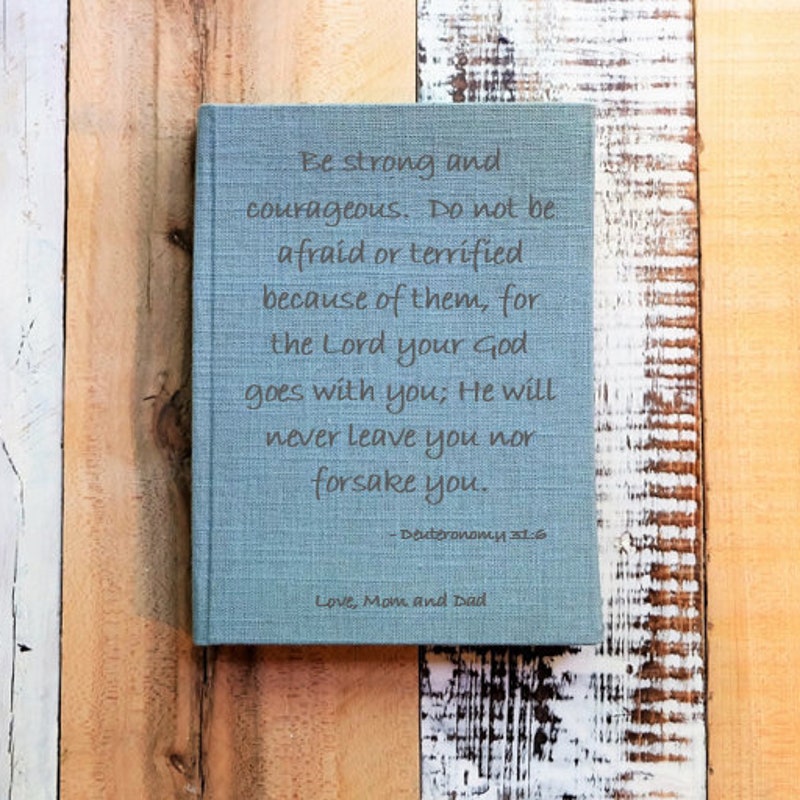 Be strong and
courageous. Do not be
afraid or terrified
because of them, for
the Lord your God
goes with you; He will
never leave you nor
forsake you.
- Deuteronomy 31:6
Love, Mom and Dad